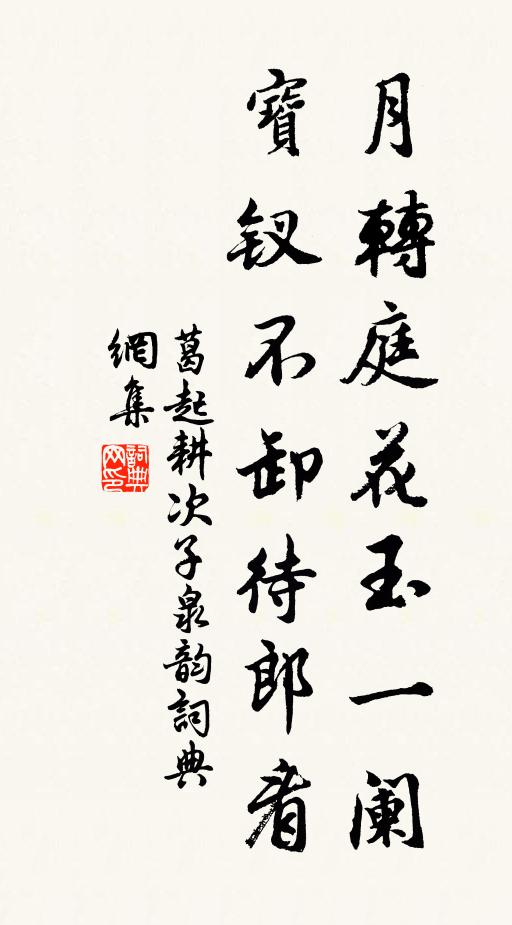 月轉庭花玉一阑
寶钗不卸待郎看
葛起耕次子泉韵詞典
網集
詞典网印